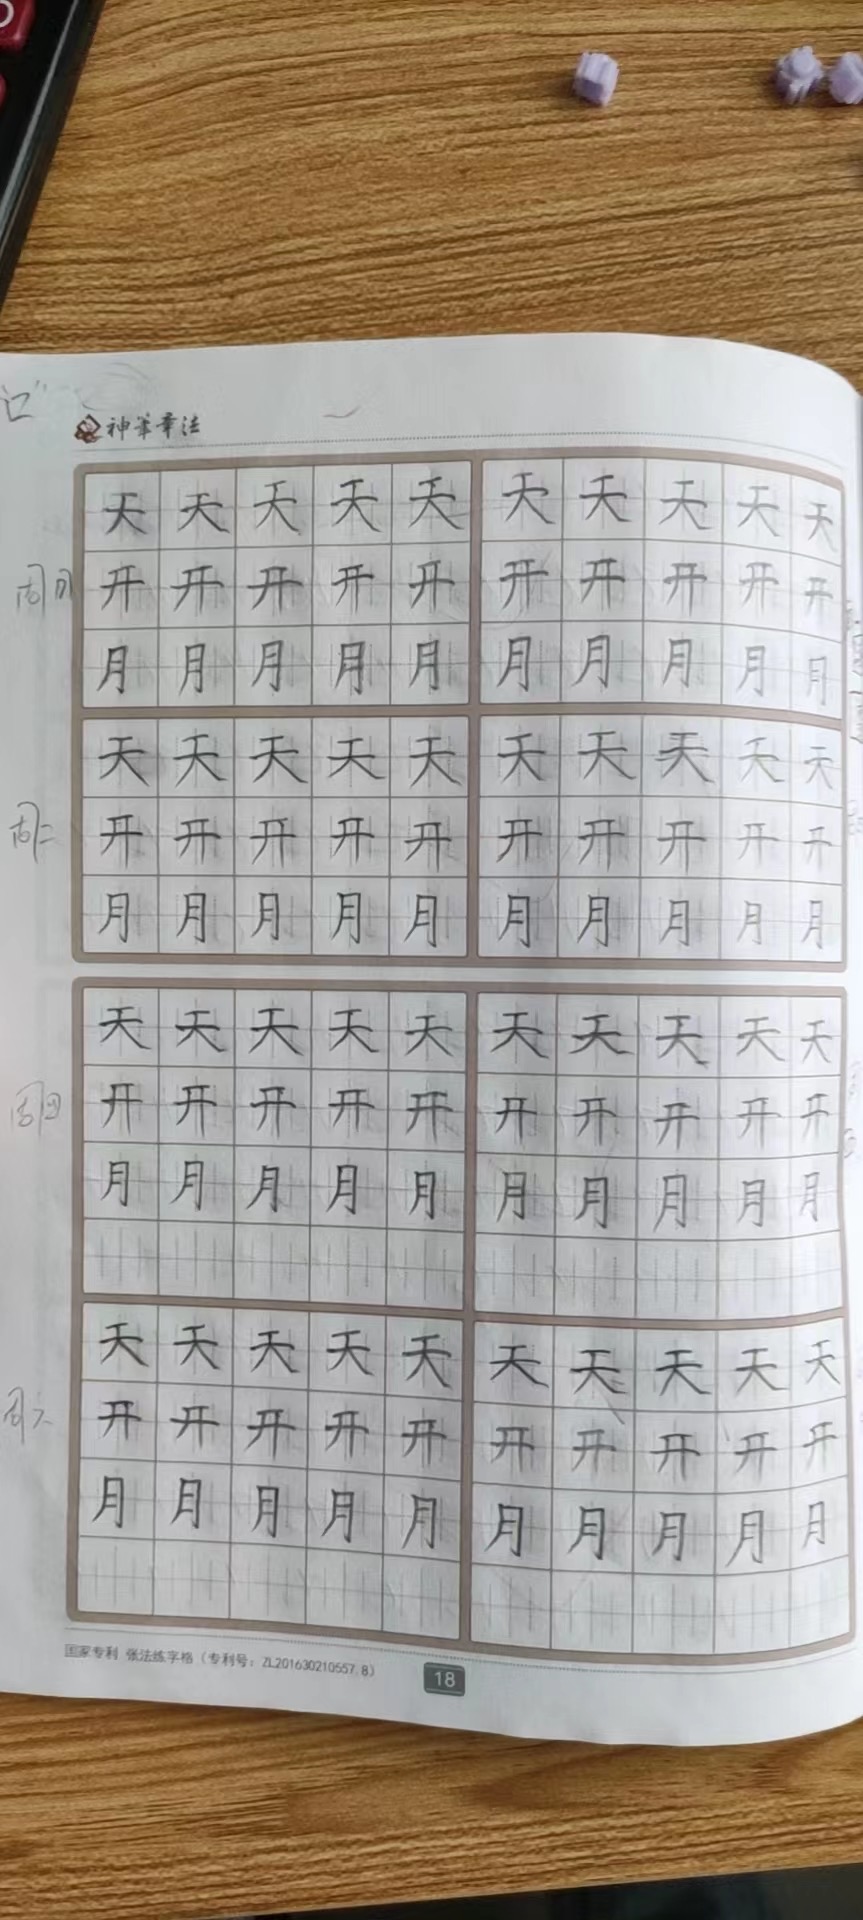 口”
神笔章法
天天天天天天天天天天
周日 开开开开开开开开开开
月月月月月月月月月月
天天天天天天天天天天
周二 开开开开开开开开开开
月月月月月月月月月月
天天天天天天天天天天
周四 开开开开开开开开开开
月月月月月月月月月月
天天天天天天天天天天
周六 开开开开开开开开开开
月月月月月月月月月月
国家专利 张法练字格（专利号：ZL201630210557.8）
18